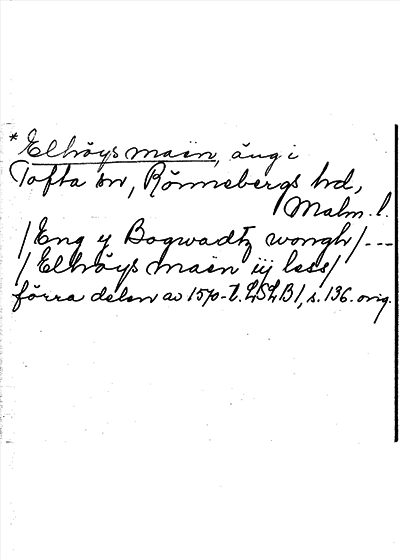 *Elhöys maën, äng i
Tofta sn, Rönnebergs hd,
Malm. l.
/Eng y Bogwadtz wongh/---
/Elhöys maën iij less/
förra delen av 1570-t. LSLB1, s. 136. orig.